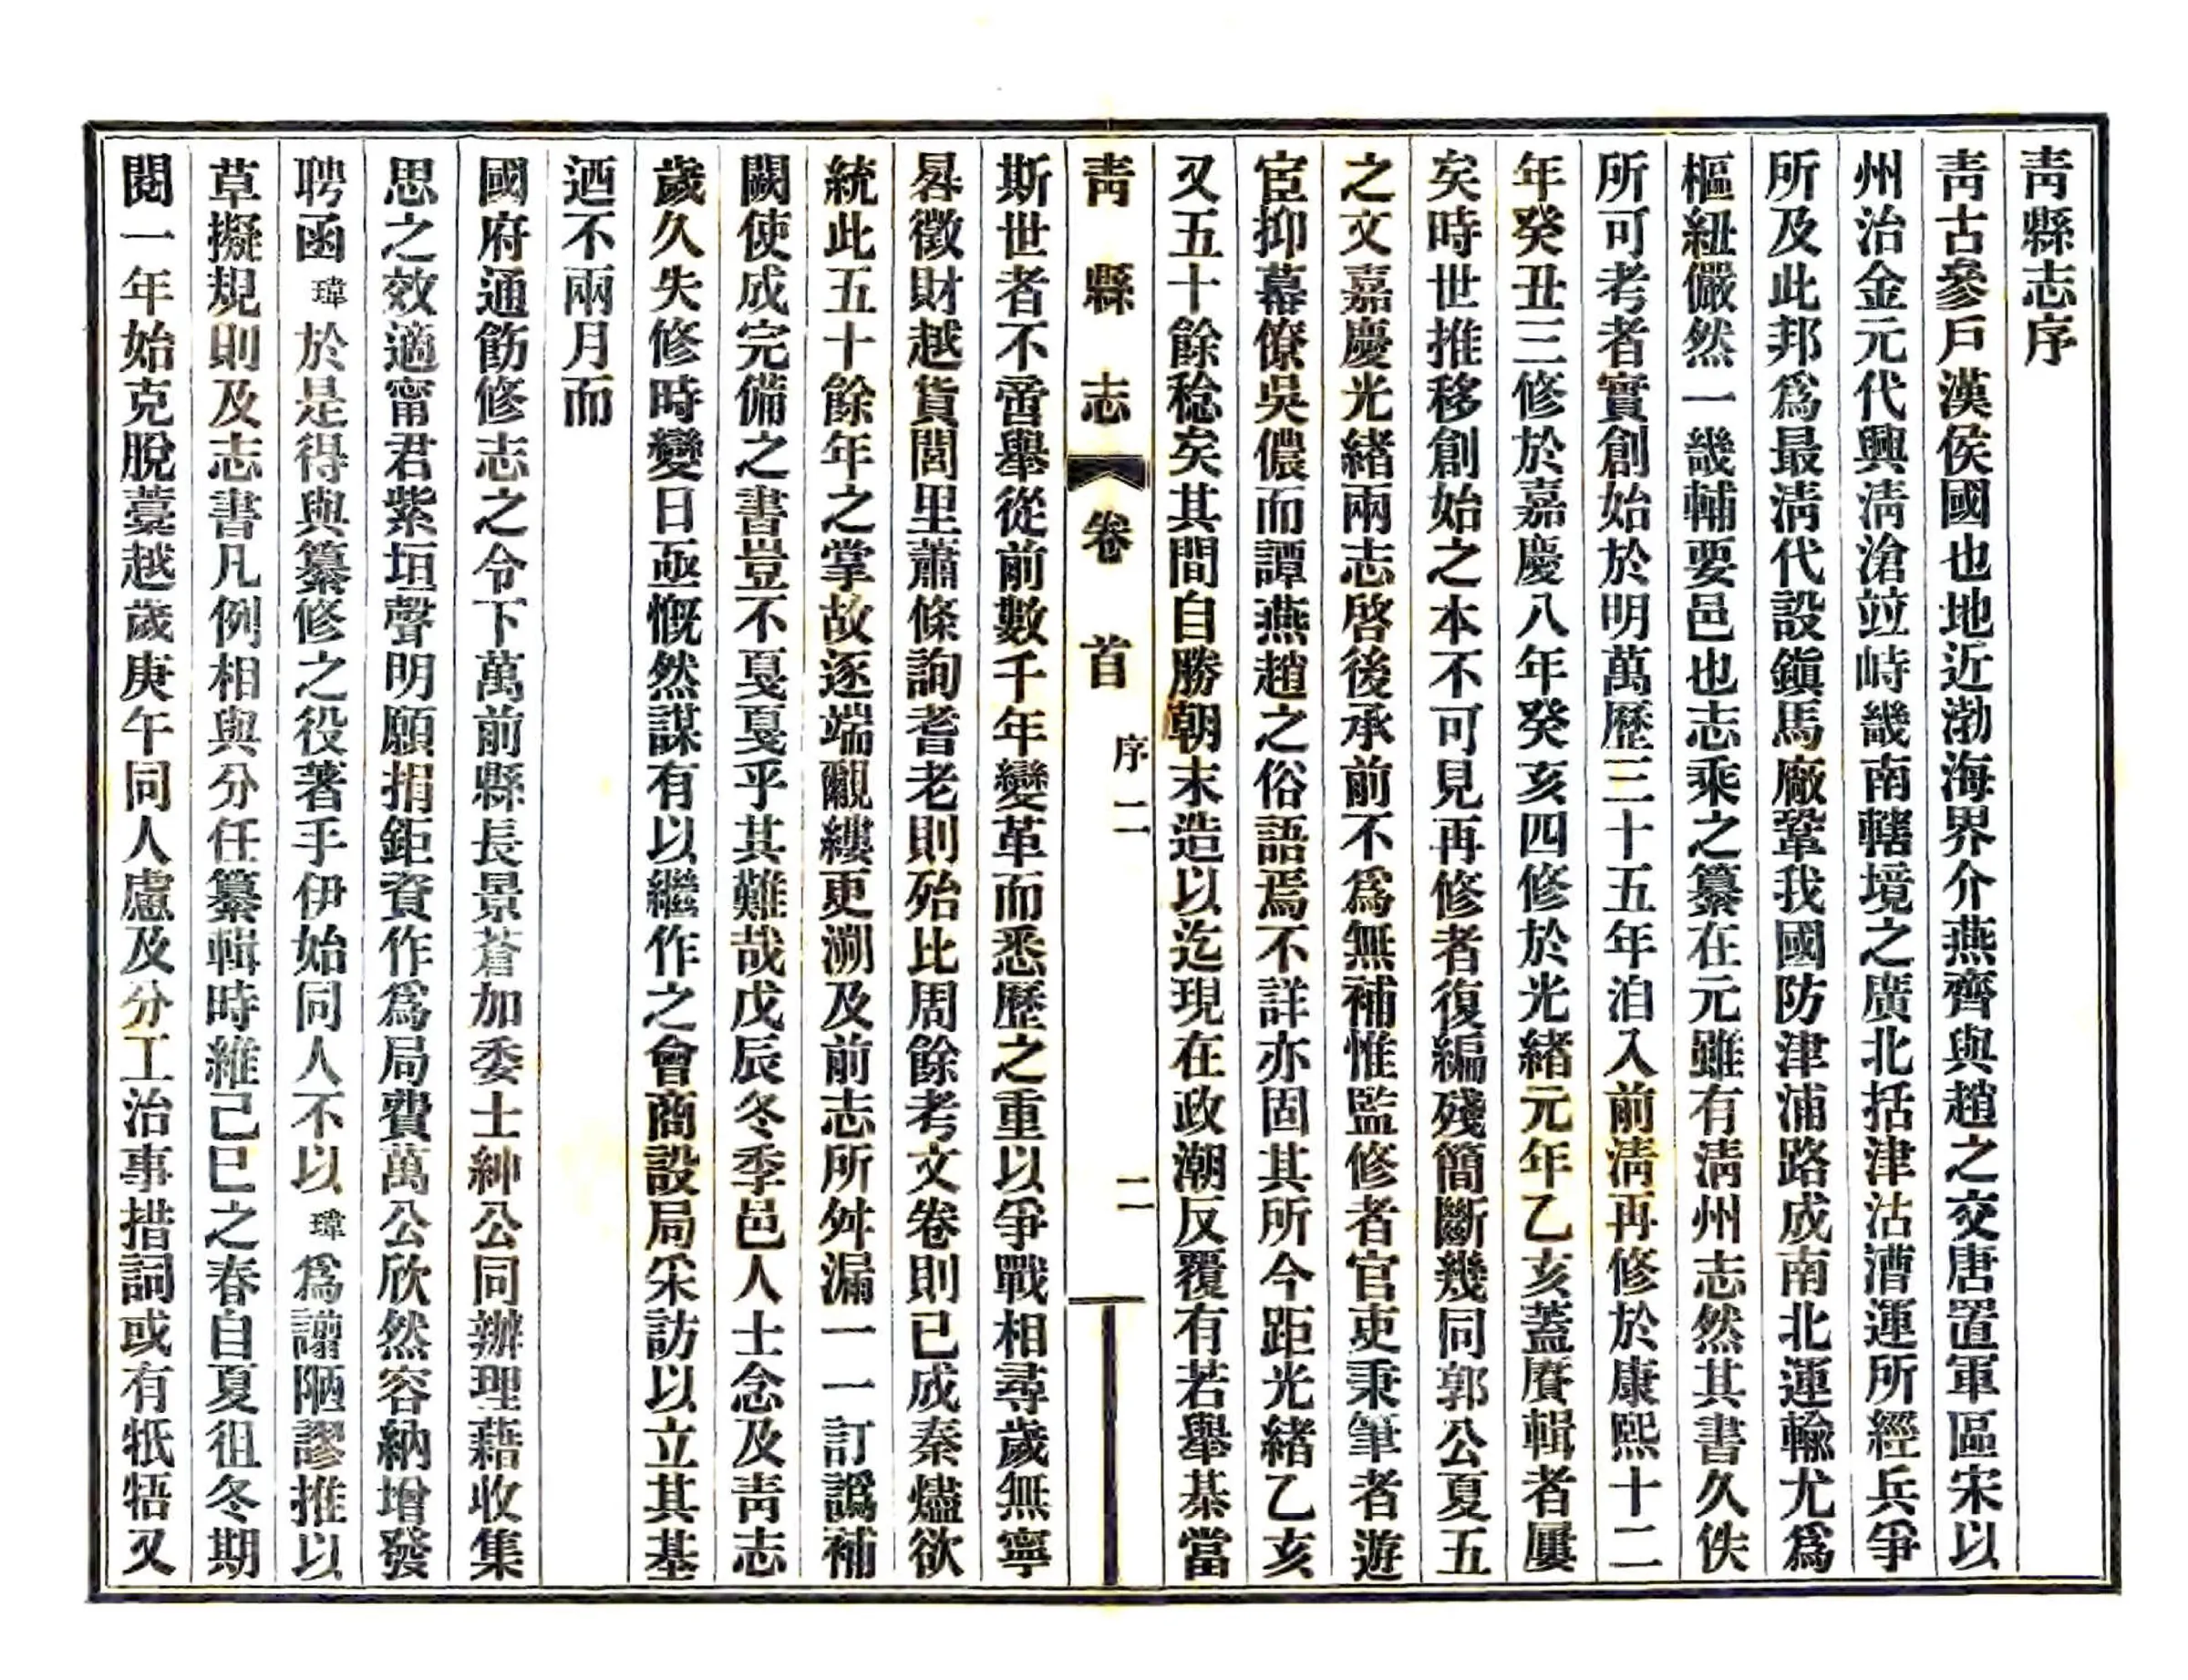 靑縣志序
靑古參戶漢侯國也地近渤海界介燕齊與趙之交唐置軍區宋以
州治金元代興淸滄竝峙畿南轄境之廣北括津沽漕運所經兵爭
所及此邦爲最淸代設鎭馬廠鞏我國防津浦路成南北運輸尤爲
樞紐儼然一畿輔要邑也志乘之纂在元雖有淸州志然其書久佚
所可考者實創始於明萬歷三十五年洎入前淸再修於康熙十二
年癸丑三修於嘉慶八年癸亥四修於光緖元年乙亥蓋賡輯者屢
矣時世推移創始之本不可見再修者復編殘簡斷幾同郭公夏五
之文嘉慶光緖兩志啓後承前不爲無補惟監修者官吏秉筆者遊
宦抑幕僚吳儂而譚燕趙之俗語焉不詳亦固其所今距光緖乙亥
又五十餘稔矣其間自勝朝末造以迄現在政潮反覆有若舉棊當
靑縣志 卷首 序二 二
斯世者不啻舉從前數千年變革而悉歷之重以爭戰相尋歲無寧
晷徵財越貨閭里蕭條詢耆老則殆比周餘考文卷則已成秦燼欲
統此五十餘年之掌故逐端覼縷更溯及前志所舛漏一一訂譌補
闕使成完備之書豈不戛戛乎其難哉戊辰冬季邑人士念及靑志
歲久失修時變日亟慨然謀有以繼作之會商設局采訪以立其基
迺不兩月而
國府通飭修志之令下萬前縣長景蒼加委士紳公同辦理藉收集
思之效適甯君紫垣聲明願捐鉅資作爲局費萬公欣然容納增發
聘函瑋於是得與纂修之役著手伊始同人不以瑋爲譾陋謬推以
草擬規則及志書凡例相與分任纂輯時維己巳之春自夏徂冬期
閱一年始克脫藁越歲庚午同人慮及分工治事措詞或有牴牾又